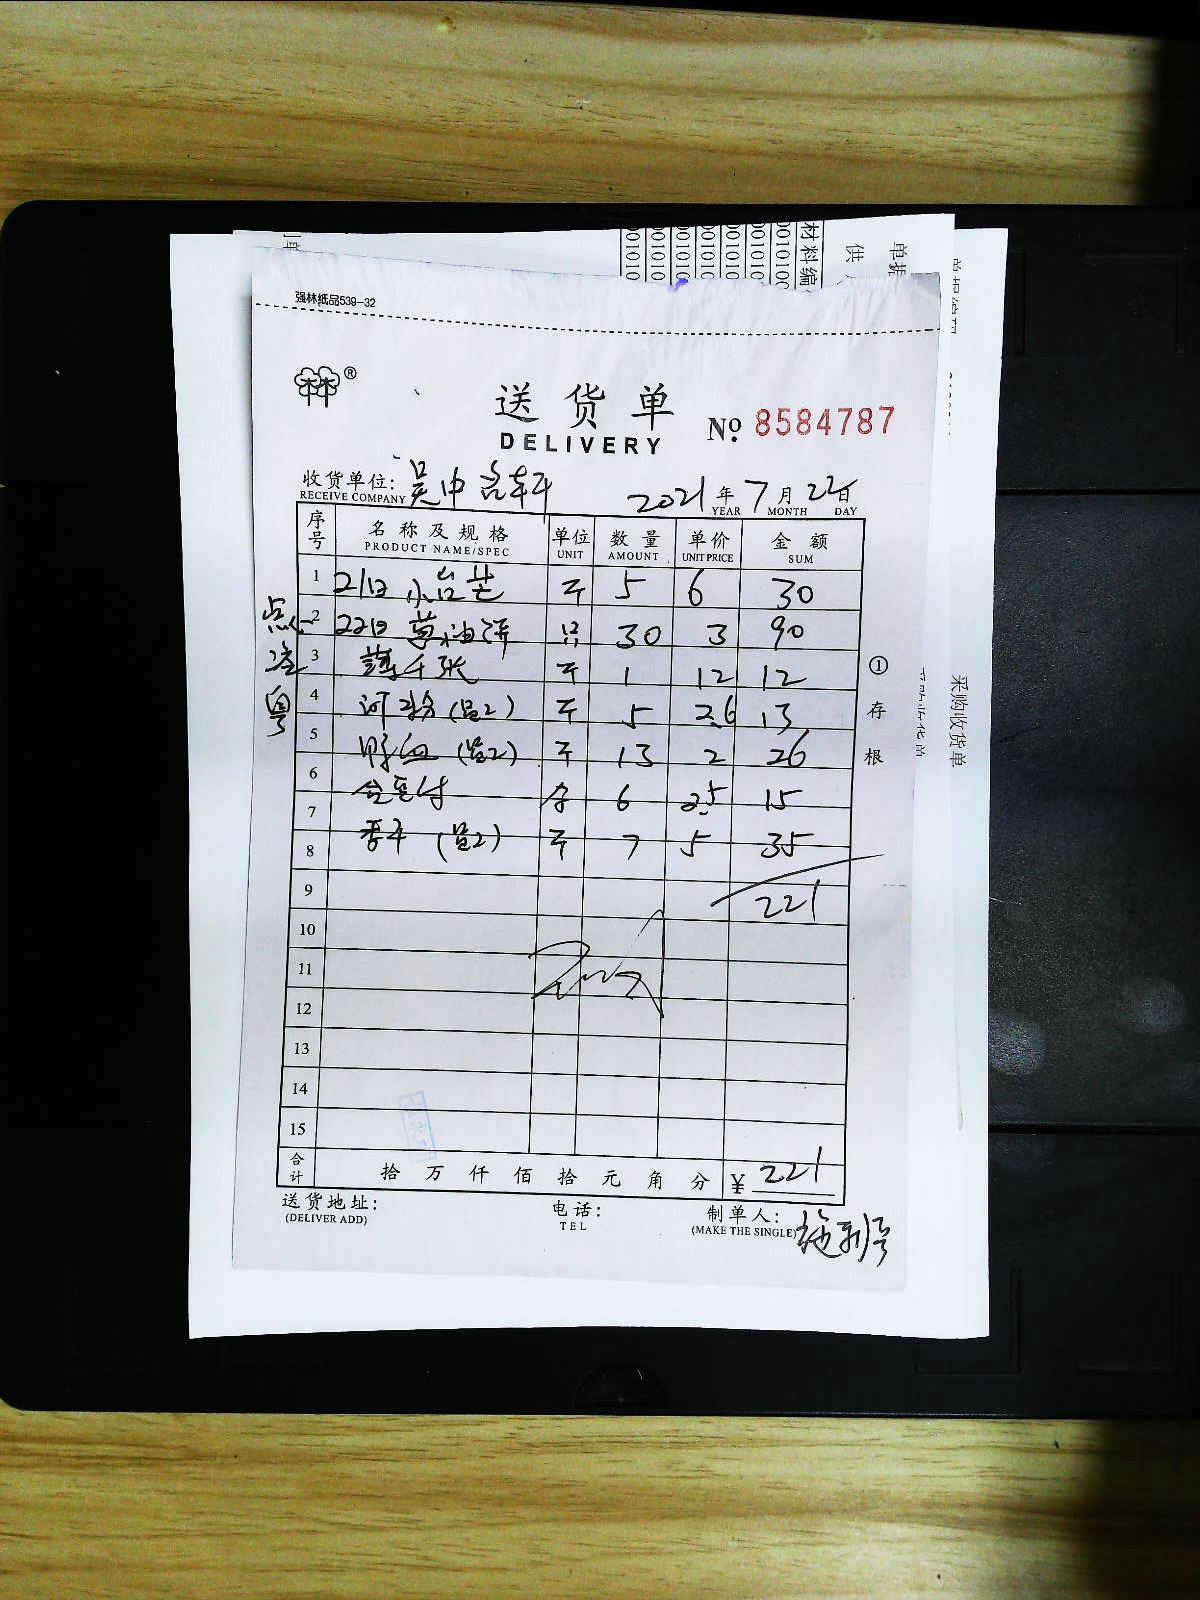 强林纸品539-32
®
送货单
DELIVERY
№ 8584787
收货单位: 吴中名轩
RECEIVE COMPANY
2021年7月22日
YEAR MONTH DAY
序号 名称及规格 单位 数量 单价 金额
PRODUCT NAME/SPEC UNIT AMOUNT UNIT PRICE SUM
1 21日 小台芒 斤 5 6 30
2 22日 葱油饼 只 30 3 90
3 薄千张 斤 1 12 12
4 河粉(昆2) 斤 5 2.6 13
5 鸭血(昆2) 斤 13 2 26
6 6 2.5 15
7 (昆2) 斤 7 5 35
8
9 221
10
11
12
13
14
15
合计 拾万仟佰拾元角分 ¥ 221
送货地址:
(DELIVER ADD)
电话:
TEL
制单人:
(MAKE THE SINGLE)
①存根
点心
粤
材料编
供
单据
采购收货单
采购收货单